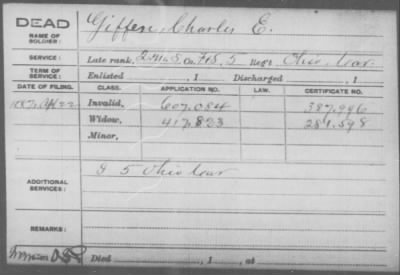 DEAD
NAME OF SOLDIER:
Giffen, Charles E.
SERVICE:
Late rank, Q.M.S. Co. F&S, 5 Regt. Ohio Cav.
TERM OF SERVICE:
Enlisted , 1 Discharged , 1
DATE OF FILING. CLASS. APPLICATION NO. LAW. CERTIFICATE NO.
Invalid, 607.084 387.996
Widow, 417.823 281.598
Minor,
ADDITIONAL SERVICES:
I 5 Ohio Cav
REMARKS:
Died , 1 , at